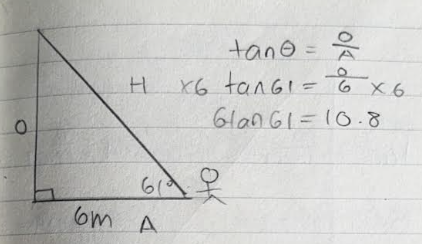 tanθ = O/A
H
×6 tan61 = O/6 ×6
O
6tan61 = 10.8
61°
6m A